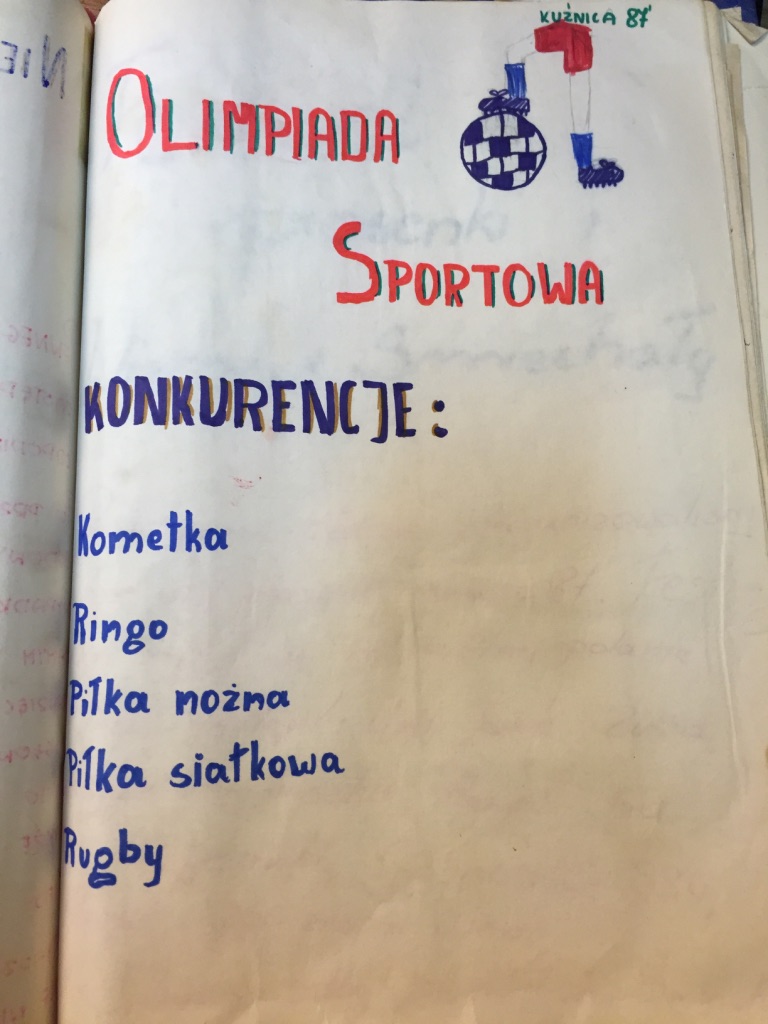 KUŹNICA 87'
OLIMPIADA
SPORTOWA
KONKURENCJE:
Kometka
Ringo
Piłka nożna
Piłka siatkowa
Rugby